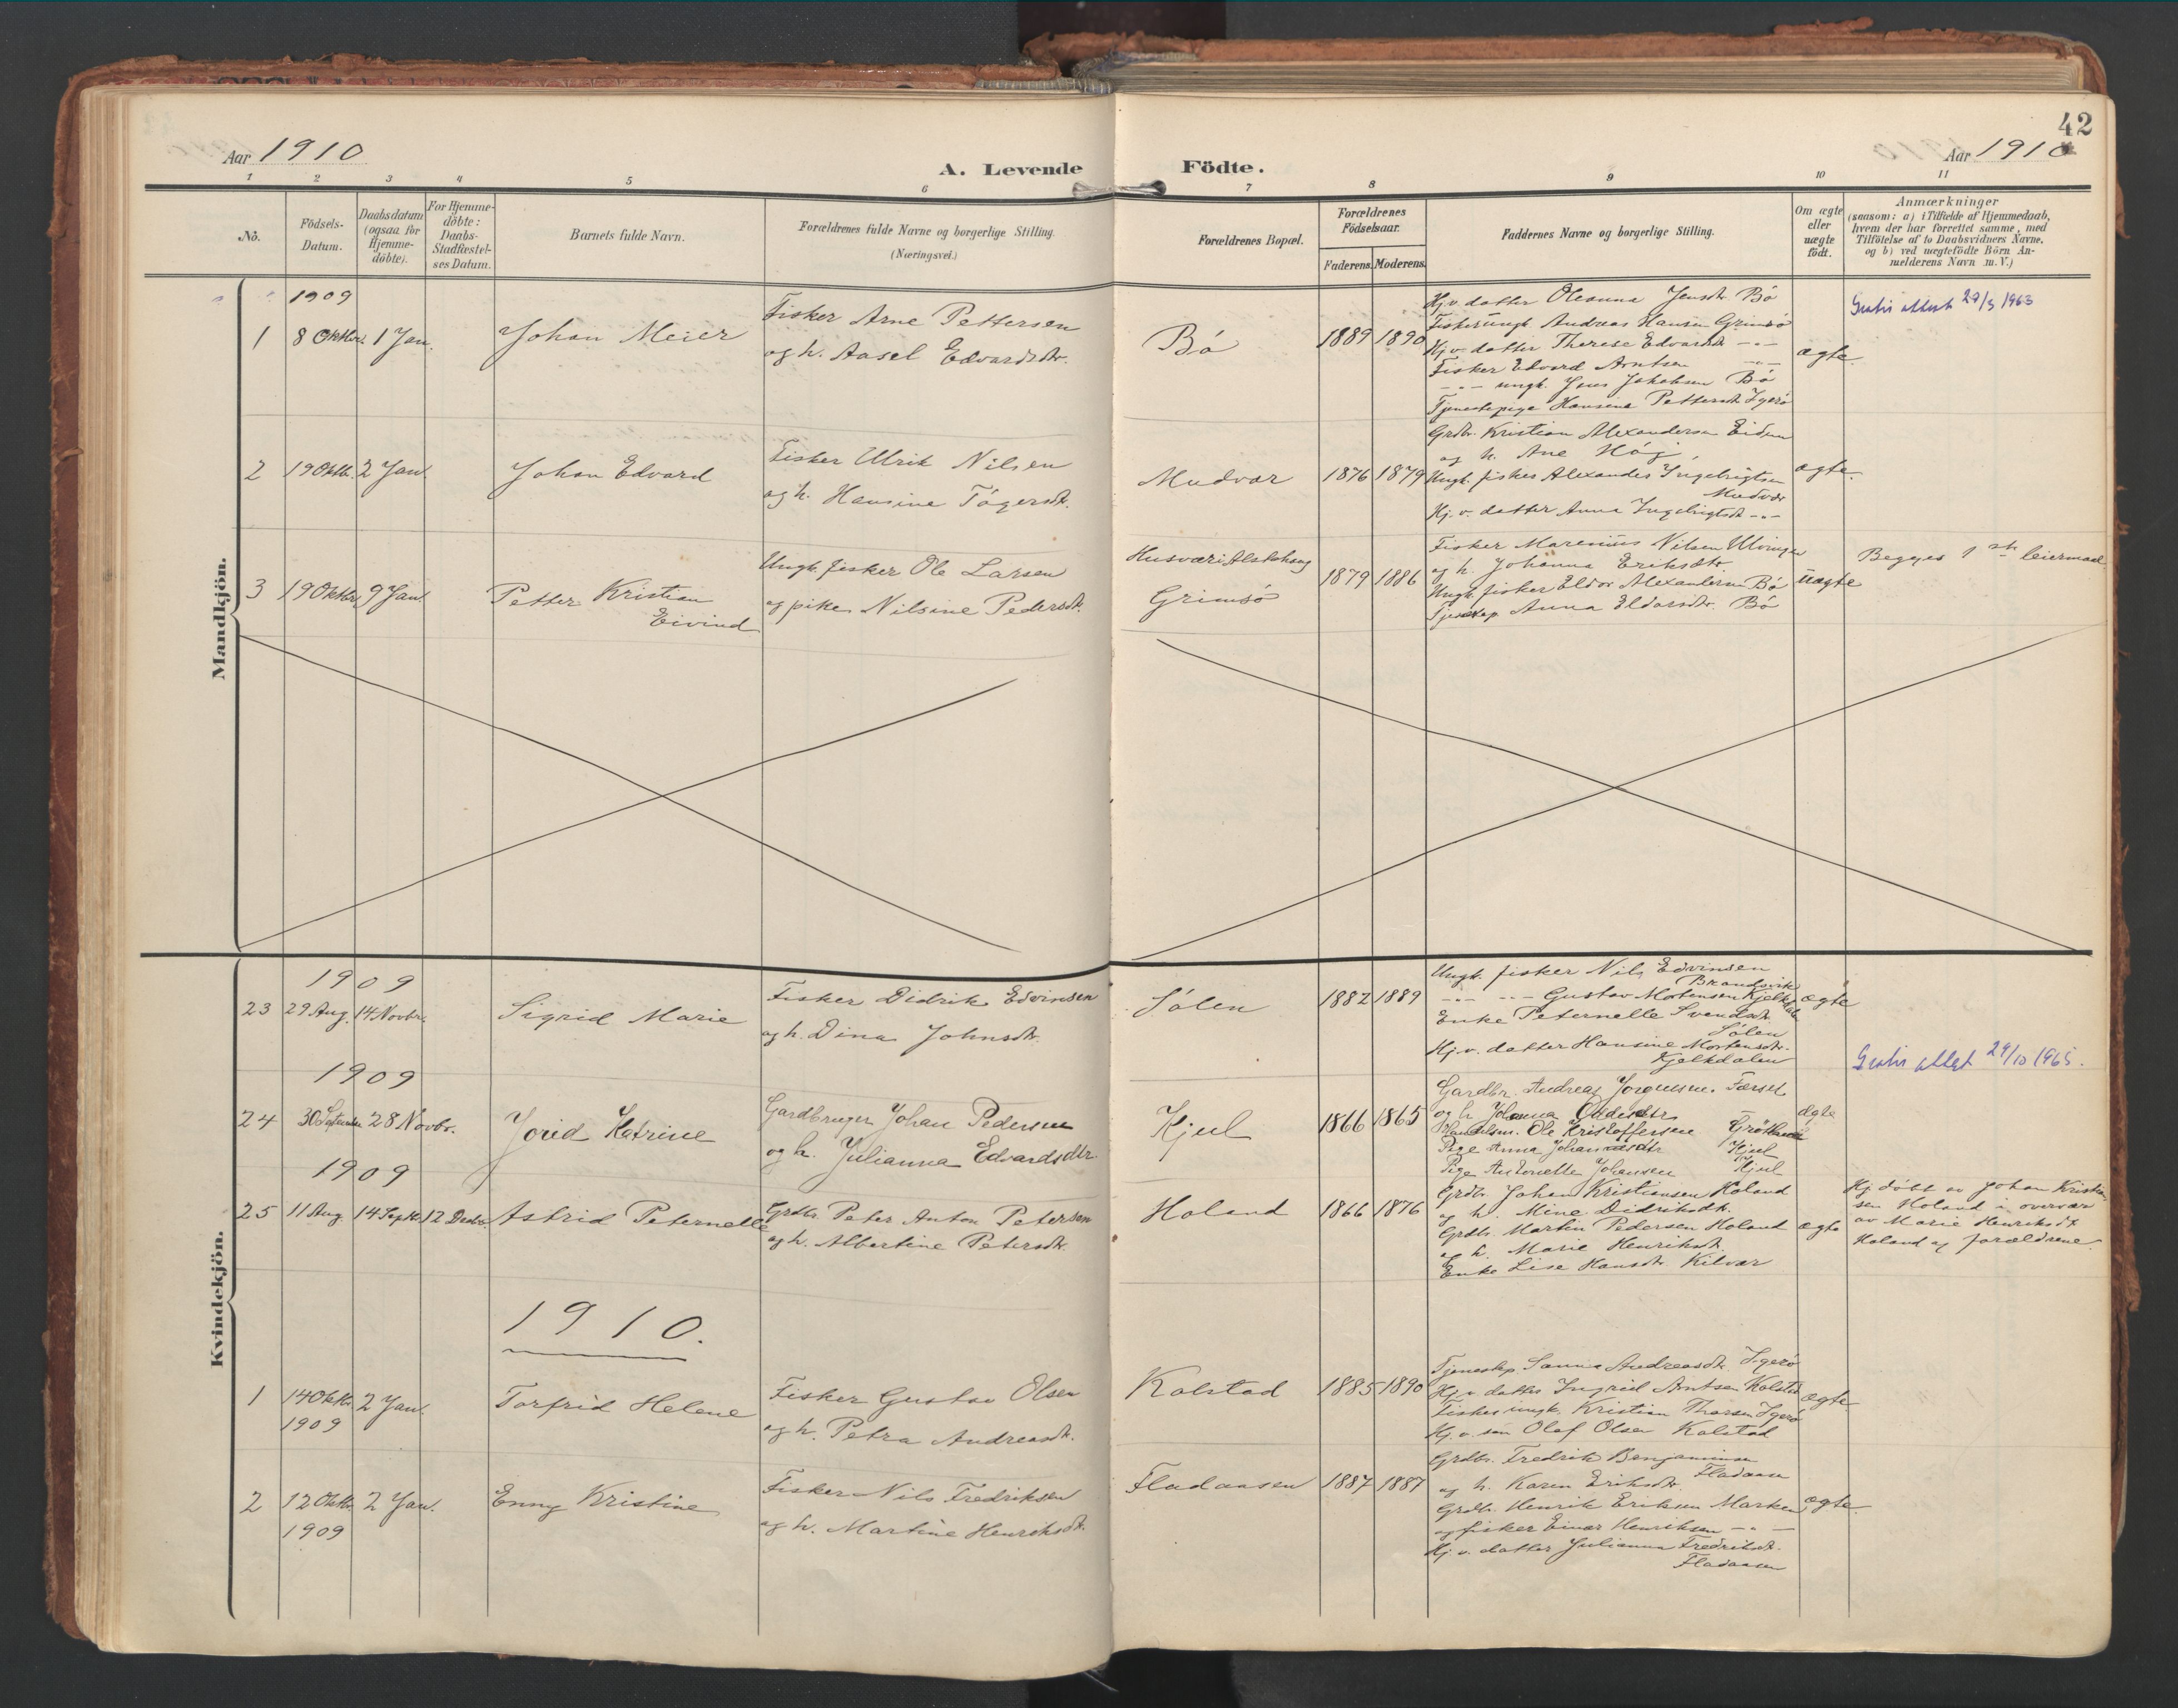 42
Aar 1910
A. Levende Födte.
Aar 1910
1 2 3 4 5 6 7 8 9 10 11
No.
Födsels-
Datum.
Daabsdatum
(ogsaa for
Hjemme-
döbte).
For Hjemme-
döbte:
Daabs-
Stadfæstel-
ses Datum.
Barnets fulde Navn.
Forældrenes fulde Navne og borgerlige Stilling.
(Næringsvei.)
Forældrenes Bopæl.
Forældrenes
Födselsaar.
Faderens. Moderens.
Faddernes Navne og borgerlige Stilling.
Om ægte
eller
uægte
födt.
Anmærkninger
(saasom: a) i Tilfælde af Hjemmedaab,
hvem der har forrettet samme, med
Tilföielse af to Daabsvidners Navne,
og b) ved uægtefödte Börn An-
melderens Navn m. V.)
Mandkjön.
1909
1
8 Oktbr.
1 Jan.
Johan Meier
Fisker Arne Pettersen
og h. Aasel Edvardsdtr.
Bó
1889
1890
Hj.v. datter Oleanna Jensdtr. Bó
Fisker ungk. Andreas Hansen Grimsó
Hj.v. datter Therese Edvardsdtr -"-
Fisker Edvard Arntsen -"-
-"- ungk. Jens Jakobsen Bó
Tjenestepige Hansine Pettersdtr Igeró
ægte.
Gratis attest 29/3 1963
2
19 Oktbr.
2 Jan.
Johan Edvard
Fisker Ulrik Nilsen
og h. Hansine Tógersdtr.
Mudvær
1876
1879
Grdbr. Kristian Alexandersen Eidem
og h. Ane Høg,
Ungk. fisker Alexander Ingebrigtsen
Mudvær
Hj.v. datter Anna Ingebrigtsdtr -"-
ægte.
3
19 Oktbr
9 Jan.
Petter Kristian
Eivind
Ungk. fisker Ole Larsen
og pike Nilsine Pedersdtr.
Husvær i Alstahaug
Grimsó
1879
1886
Fisker Marenius Nilsen Ulvinger
og h. Johanna Eriksdtr.
Ungk. fisker Eldor Alexandersen Bó
Tjenestep Anna Eldorsdtr. Bó
uægte
Begges 1ste leiermaal
Kvindekjön.
1909
23
29 Aug.
14 Novbr.
Sigrid Marie
Fisker Didrik Edvinsen
og h. Dina Johnsdtr.
Sólen
1882
1889
Ungk. fisker Nils Edvinsen
Brandsvik
-"- -"- Gustav Mortensen Kjelkdalen
Enke Peternelle Svendsdtr.
Sólen
Hj.v. datter Hansine Mortensdtr.
Kjelkdalen
ægte
1909
24
30 September
28 Novbr.
Jorid Katrine
Gardbruger Johan Pedersen
og h. Julianna Edvardsdtr.
Kjul
1866
1865
Gardbr. Andreas Jorgensen. Færset
og h. Johanna
Handelsm. Ole Kristoffersen
Pige Anna Johannesdtr Kjul
Pige Antonette Johansen Kjul
ægte
Gratis attest 29/10 1965.
1909
25
11 Aug.
14 Septbr.
12 Decbr.
Astrid Peternelle
Grdbr. Peter Anton Petersen
og h. Albertine Petersdtr.
Holand
1866
1876
Grdbr. Johan Kristiansen Holand
og h. Mine Didriksdtr.
Grdbr. Martin Pedersen Holand
og h. Marie Henriksdtr.
Enke Lise Hansdtr. Kilvær
ægte
Hj. döbt av Johan Kristian-
sen Holand i overvær
av Marie Henriksdtr
Holand og forældrene.
1910.
1
14 Oktbr.
1909
2 Jan.
Torfrid Helene
Fisker Gustav Olsen
og h. Petra Andreasdtr.
Kolstad
1885
1890
Tjenestep. Sanna Andreasdtr. Igeró
Hj.v. datter Ingrid Arntsen Kolstad
Fisker ungk. Kristian Thorsen Igeró
Hj.v. sön Olaf Olsen Kolstad
ægte
2
12 Oktbr.
1909
2 Jan.
Enny Kristine
Fisker Nils Fredriksen
og h. Martine Henriksdtr.
Fladaasen
1887
1887
Grdbr. Fredrik Benjaminsen
Fladaasen
og h. Karen Eriksdtr.
Grdbr. Henrik Eriksen Marken
og fisker Einar Henriksen -"-
Hj.v. datter Julianna Fredriksdtr.
Fladaasen
ægte.